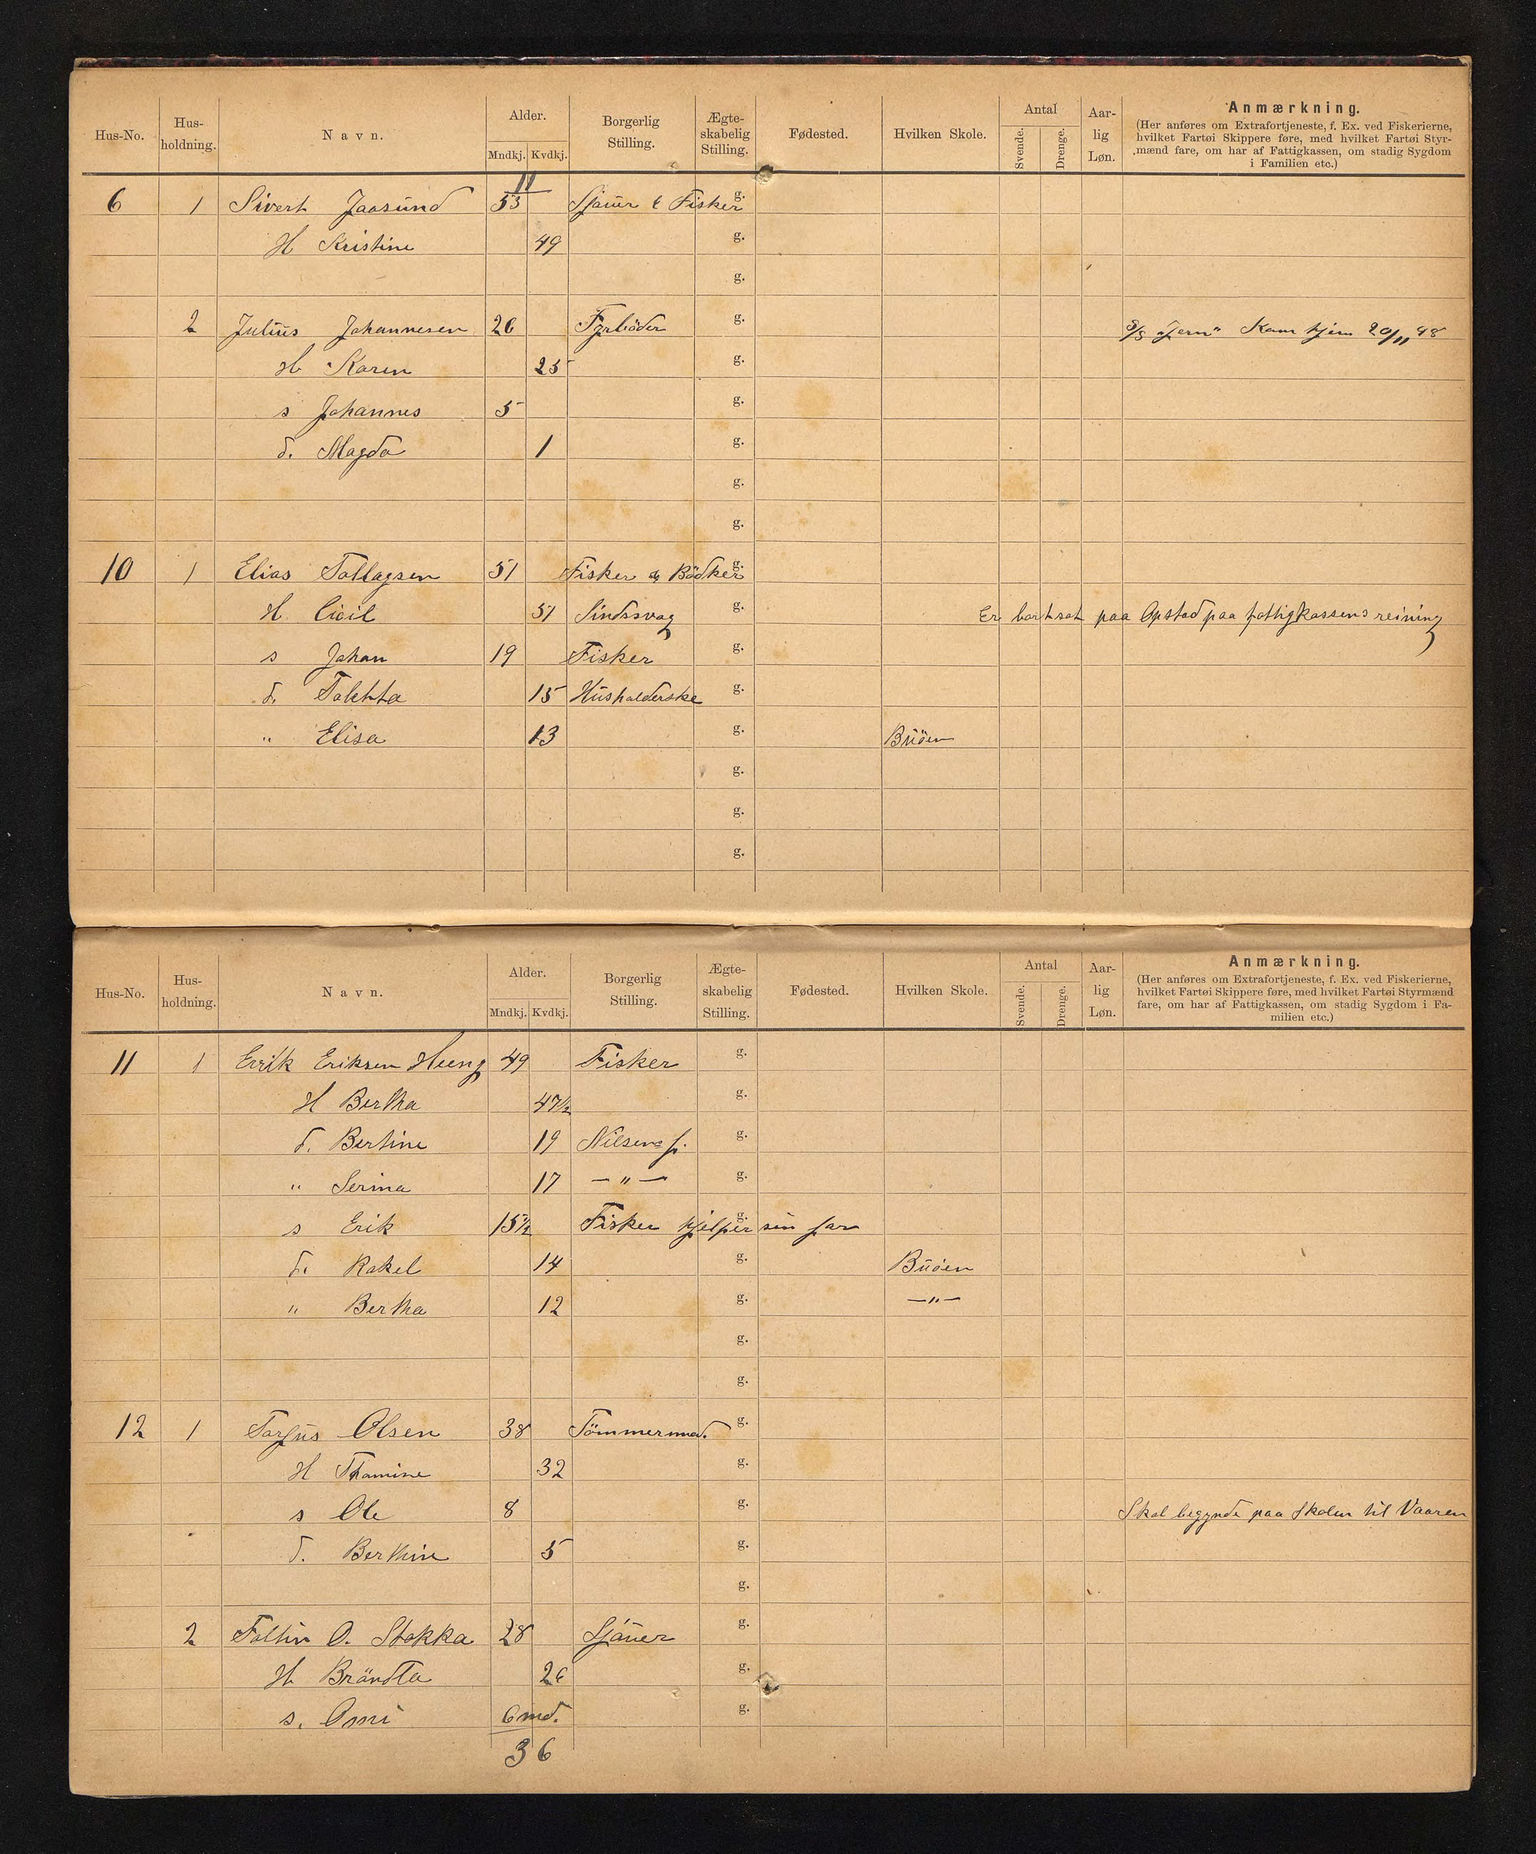 Hus-No. Hus-holdning. Navn. Alder. Mndkj. Kvdkj. Borgerlig Stilling. Ægte-skabelig Stilling. Fødested. Hvilken Skole. Antal Svende. Drenge. Aar-lig Løn. Anmærkning.
(Her anføres om Extrafortjeneste, f. Ex. ved Fiskerierne,
hvilket Fartøi Skippere føre, med hvilket Fartøi Styr-
mænd fare, om har af Fattigkassen, om stadig Sygdom
i Familien etc.)
11
6 1 Sivert Jaasund 53 Sjauer & Fisker g.
H Kristine 49 g.
g.
2 Julius Johannesen 26 Fyrböder g. S/S "Jern" Kom hjem 20/11 98
H Karen 25 g.
s Johannes 5 g.
d. Magda 1 g.
g.
g.
10 1 Elias Tollagsen 51 Fisker & Bödker g.
H Cicil 51 Sindssvag g. Er bortsat paa Opstad paa fattigkassens reining
s Johan 19 Fisker g.
d. Toletta 15 Husholderske g.
" Elisa 13 g. Buöen
g.
g.
g.
Hus-No. Hus-holdning. Navn. Alder. Mndkj. Kvdkj. Borgerlig Stilling. Ægte-skabelig Stilling. Fødested. Hvilken Skole. Antal Svende. Drenge. Aar-lig Løn. Anmærkning.
(Her anføres om Extrafortjeneste, f. Ex. ved Fiskerierne,
hvilket Fartøi Skippere føre, med hvilket Fartøi Styrmænd
fare, om har af Fattigkassen, om stadig Sygdom i Fa-
milien etc.)
11 1 Erik Eriksen Heeng 49 Fisker g.
H Bertha 47½ g.
d. Bertine 19 Nilsens f. g.
" Serina 17 — " — g.
s Erik 15½ Fisker hjelper sin far g.
d. Rakel 14 g. Buöen
" Bertha 12 g. — " —
g.
g.
12 1 Torjus Olsen 38 Tömmermd. g.
H Thomine 32 g.
s Ole 8 g. Skal begynde paa Skolen til Vaaren
d. Berthine 5 g.
g.
2 Toltin O. Stokka 28 Sjauer g.
H Bröndta 26 g.
s. Omi 6 md. g.
36